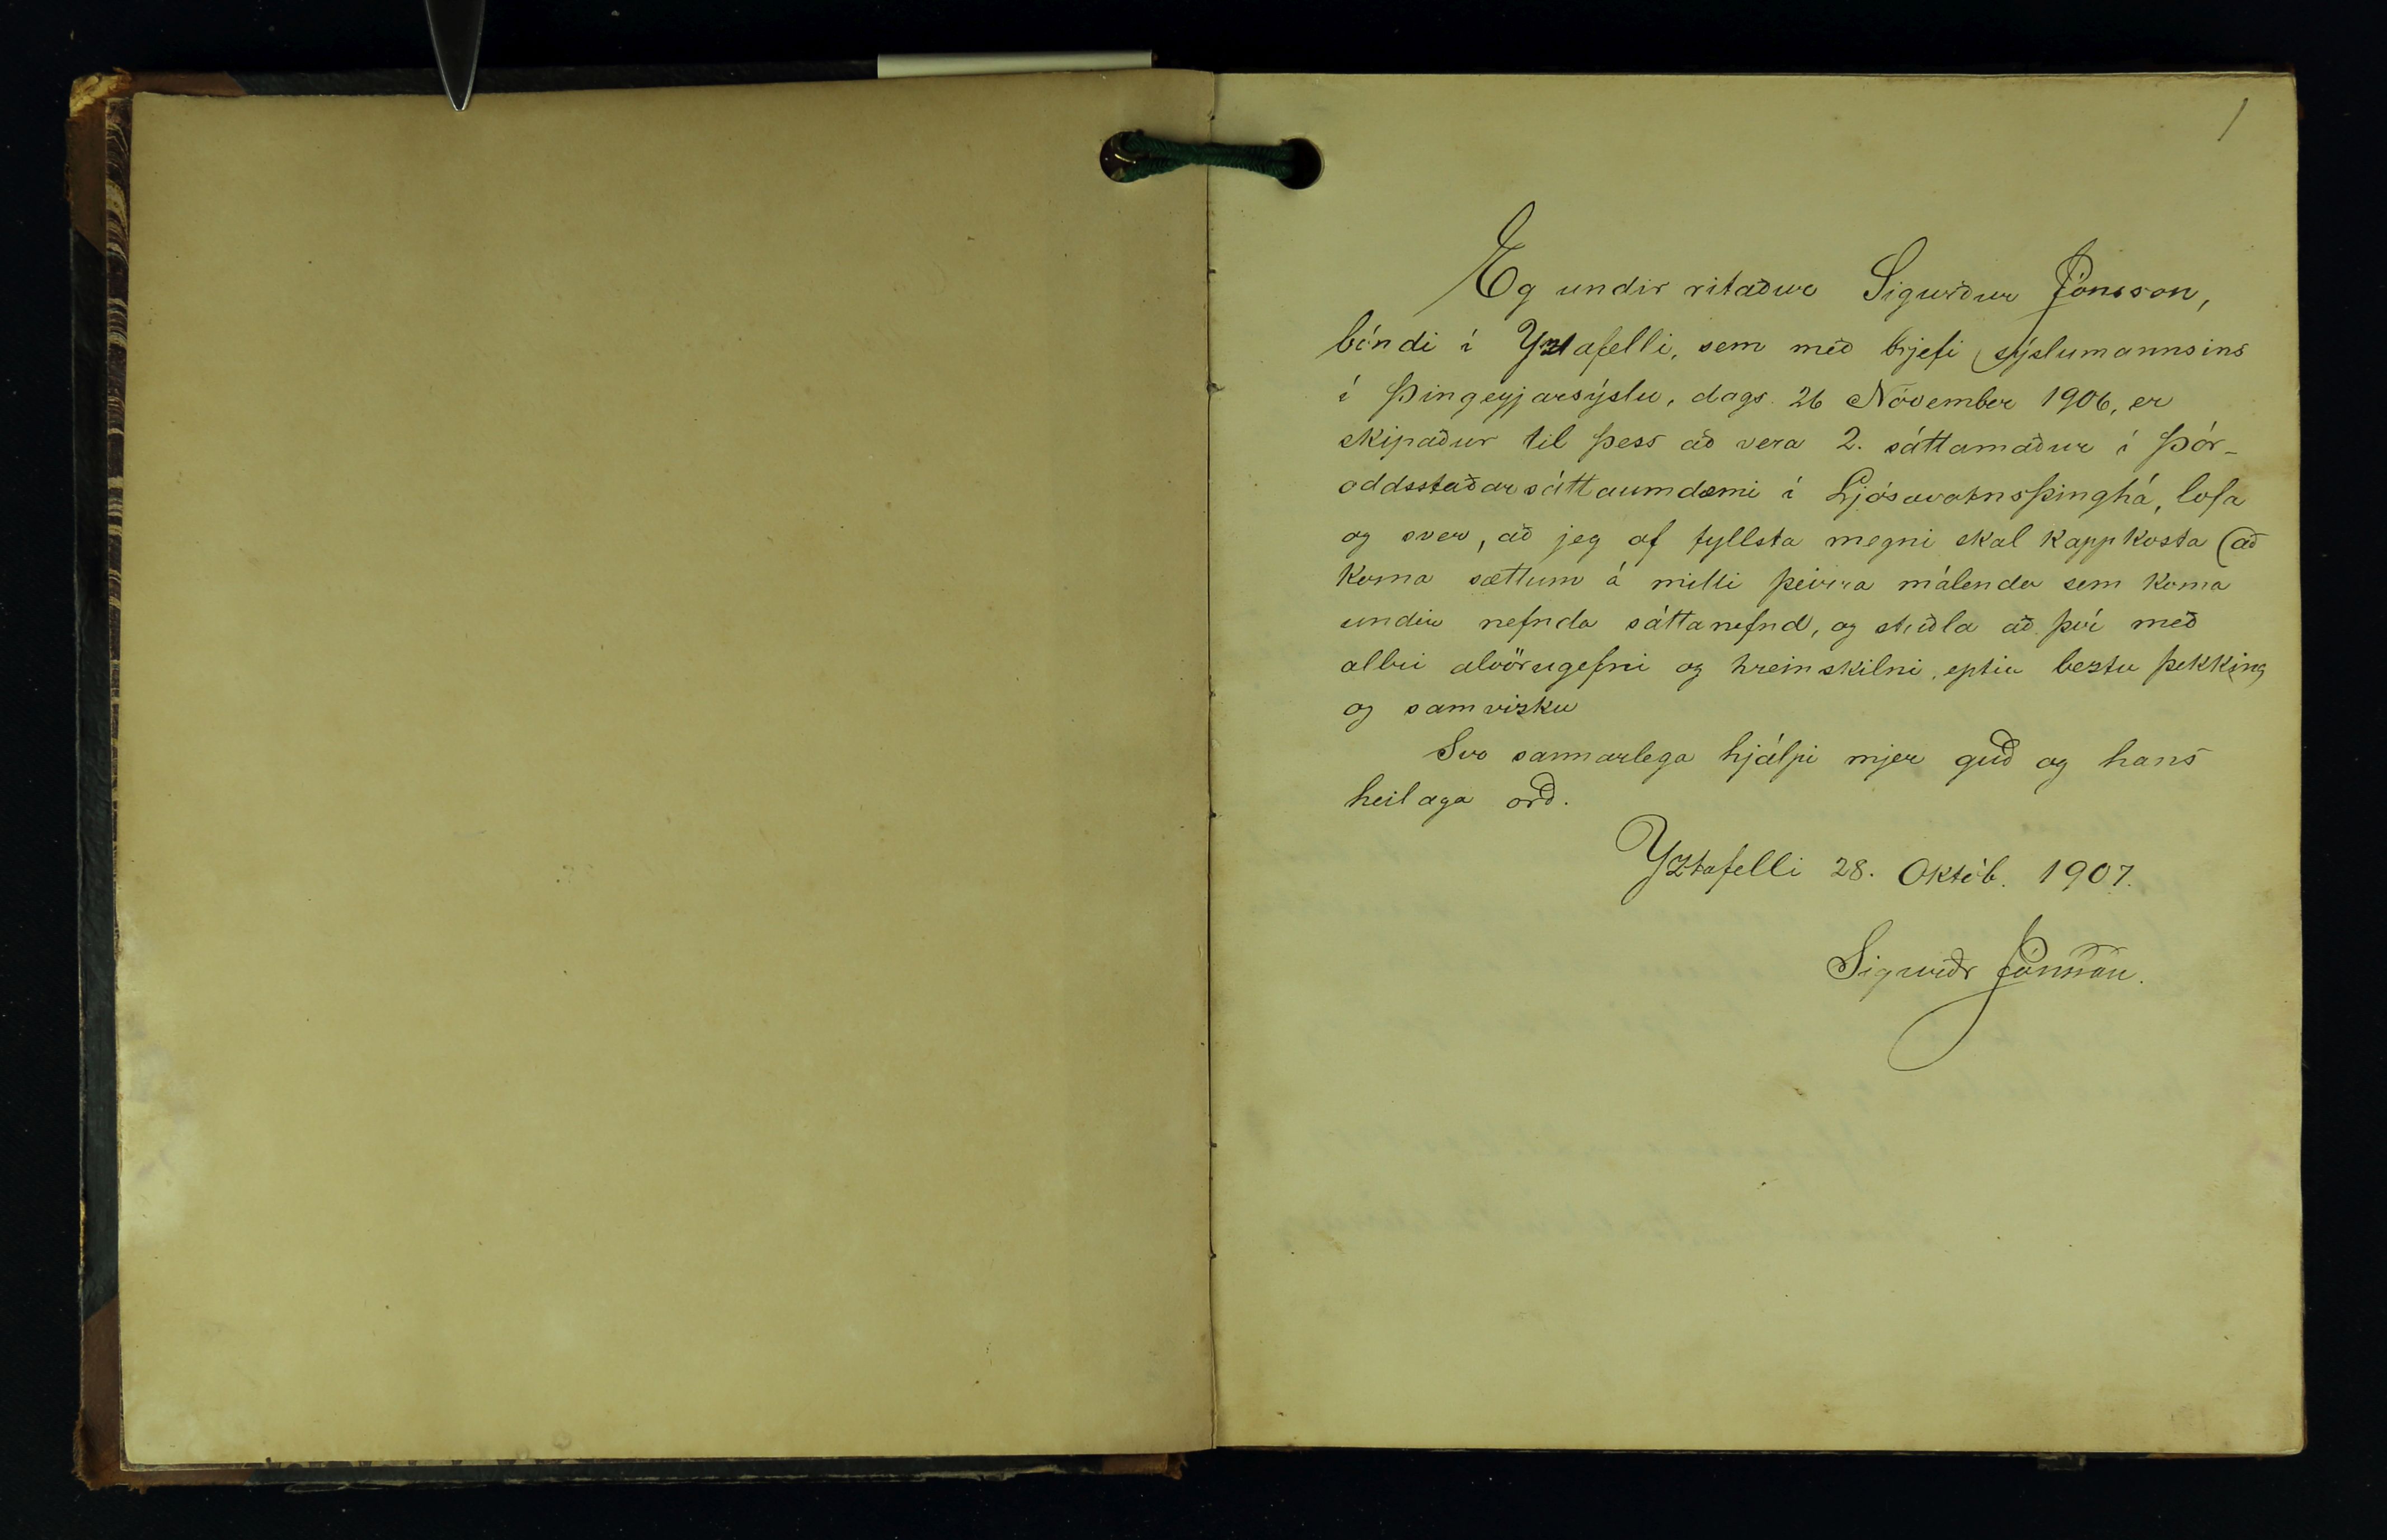 1
Eg undir ritaður Sigurður Jónsson,
bóndi í Yztafelli, sem með brjefi sýslumannsins
í Þingeyjarsýslu, dags. 26 Nóvember 1906, er
skipaður til þess að vera 2. sáttamaður í Þór-
oddsstaðarsáttaumdæmi í Ljósavatnsþinghá, lofa
og sver, að jeg af fyllsta megni skal kappkosta að
koma sættum á milli þeirra málenda sem koma
undir nefnda sáttanefnd, og stuðla að því með
allri alvörugefni og hreinskilni, eptir beztu þekking
og samvizku
Svo sannarlega hjálpi mjer guð og hans
heilaga orð.
Yztafelli 28. Októb. 1907.
Sigurðr Jónsson.